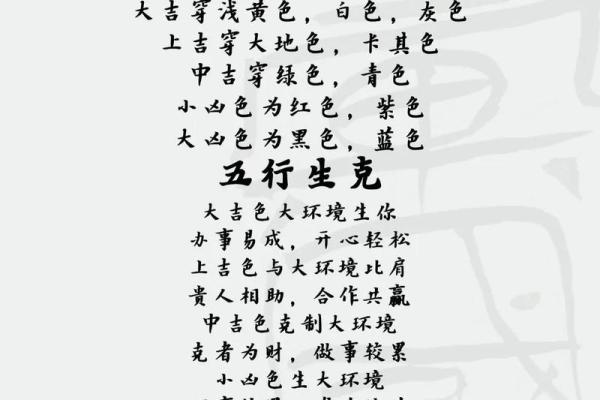 大吉穿浅黄色，白色，灰色
上吉穿大地色，卡其色
中吉穿绿色，青色
小凶色为红色，紫色
大凶色为黑色，蓝色
五行生克
大吉色大环境生你
办事易成，开心轻松
上吉色与大环境比肩
贵人相助，合作共赢
中吉色克制大环境
克者为财，做事较累
小凶色生大环境